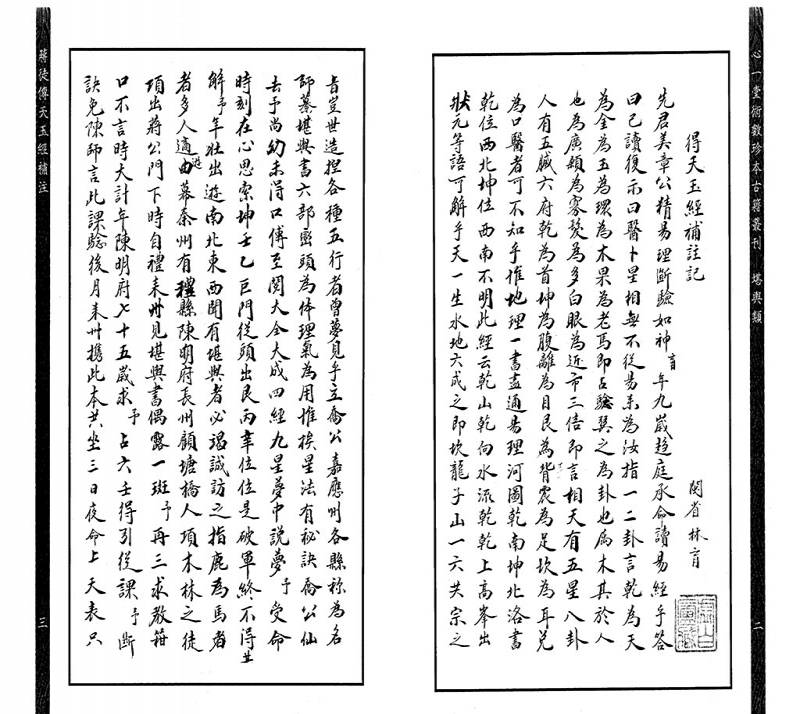 心一堂術數珍本古籍叢刊　堪輿類
二
得天玉經補註記
閩省林育
先君美章公精易理斷驗如神育年九歲趨庭承命讀易經乎答
曰已讀復示曰醫卜星相無不從易來為汝指一二卦言乾為天
為金為玉為環為木果為老馬即占驗巽之為卦也屬木其於人
也為廣顙為寡髮為多白眼為近市三倍即言相天有五星八卦
人有五臟六府乾為首坤為腹離為目艮為背震為足坎為耳兌
為口醫者可不知乎惟地理一書盡通易理河圖乾南坤北洛書
乾位西北坤位西南不明此經云乾山乾向水流乾乾上高峯出
狀元等語可解乎天一生水地六成之即坎龍子山一六共宗之
旨宣世造捏各種五行者曾夢見乎立喬公嘉應州各縣稱為名
師纂堪輿書六部巒頭為体理氣為用惟挨星法有秘訣喬公仙
去予尚幼未得口傳至閱大全大成四經九星夢中說夢予受命
時刻在心思索坤壬乙巨門從頭出艮丙辛位位是破軍終不得其
解予年壯出遊南北東西聞有堪輿者必竭誠訪之指鹿為馬者
者多人適遊由幕秦州有禮縣陳明府長州顧塘橋人項木林之徒
項出蔣公門下時自禮來州見堪輿書偶露一斑予再三求教箝
口不言時大計年陳明府七十五歲求予占六壬得引從課予斷
訣免陳師言此課驗後月來州攜此本共坐三日夜命上天表只
蔣徒傳天玉經補注
三